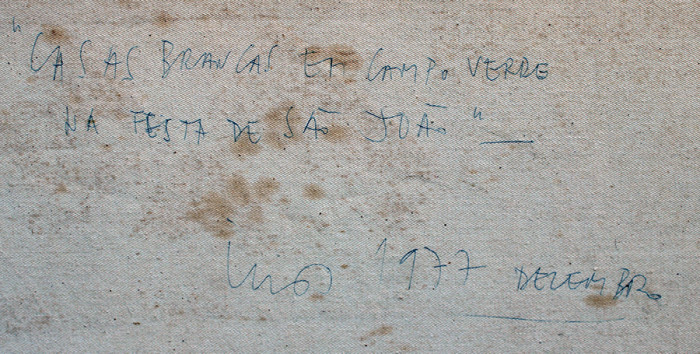 "CASAS BRANCAS EM CAMPO VERDE
NA FESTA DE SÃO JOÃO"
1977 DEZEMBRO